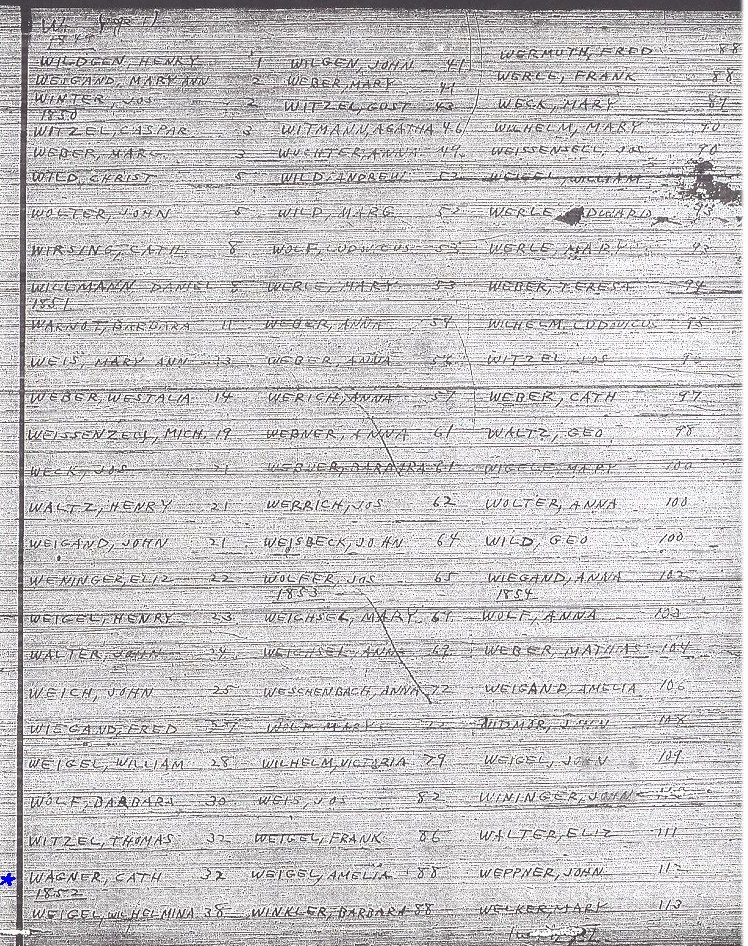 1849
WILDGEN, HENRY 1
WEIGAND, MARY ANN 2
WINTER, JOS 2
1850
WITZEL, CASPAR 3
WEBER, MARG 3
WILD, CHRIST 5
WOLTER, JOHN 5
WIRSING, CATH 8
WILLMANN DANIEL 8
1851
WARNOT, BARBARA 11
WEIS, MARY ANN 13
WEBER, WESTALIA 14
WEISSENZELL, MICH. 19
WECK, JOS 21
WALTZ, HENRY 21
WEIGAND, JOHN 21
WENINGER, ELIZ 22
WEIGEL, HENRY 23
WALTER, JOHN 24
WEICH, JOHN 25
WIEGAND, FRED
WEIGEL, WILLIAM 28
WOLF, BARBARA 30
WITZEL, THOMAS 32
WAGNER, CATH 32
1852
WEIGEL, WILHELMINA 38
WILGEN, JOHN 41
WEBER, MARY 41
WITZEL, GUST 43
WITMANN, AGATHA 46
WUCHTER, ANNA 49
WILD, ANDREW 52
WILD, MARG 52
WOLF, LUDOVICUS 53
WERLE, MARY 53
WEBER, ANNA 54
WEBER, ANNA 56
WERICH, ANNA 57
WEBNER, ANNA 61
WEBNER, BARBARA 61
WERRICH, JOS 62
WEISBECK, JOHN 64
WOLFER, JOS 65
1853
WEICHSEL, MARY 69
WEICHSEL, ANNA 69
WESCHENBACH, ANNA 72
WOLF MARY
WILHELM, VICTORIA 79
WEIS, JOS 82
WEIGEL, FRANK 86
WEIGEL, AMELIA 88
WINKLER, BARBARA 88
WERMUTH, FRED 88
WERLE, FRANK 88
WECK, MARY 89
WILHELM, MARY 90
WEISSENSELL, JOS 90
WEIGEL, WILLIAM
WERLE 93
WERLE, MARY 93
WEBER, TERESA 94
WILHELM, LUDOVICUS 95
WITZEL, JOS
WEBER, CATH 97
WALTZ, GEO 98
WIGELE MARY 100
WOLTER, ANNA 100
WILD, GEO 100
WIEGAND, ANNA 102
1854
WOLF, ANNA 102
WEBER, MATHIAS 104
WEIGAND, AMELIA 106
WEIGEL, JOHN 109
WININGER, JOHN
WALTER, ELIZ 111
WEPPNER, JOHN 112
WELKER, MARY 113